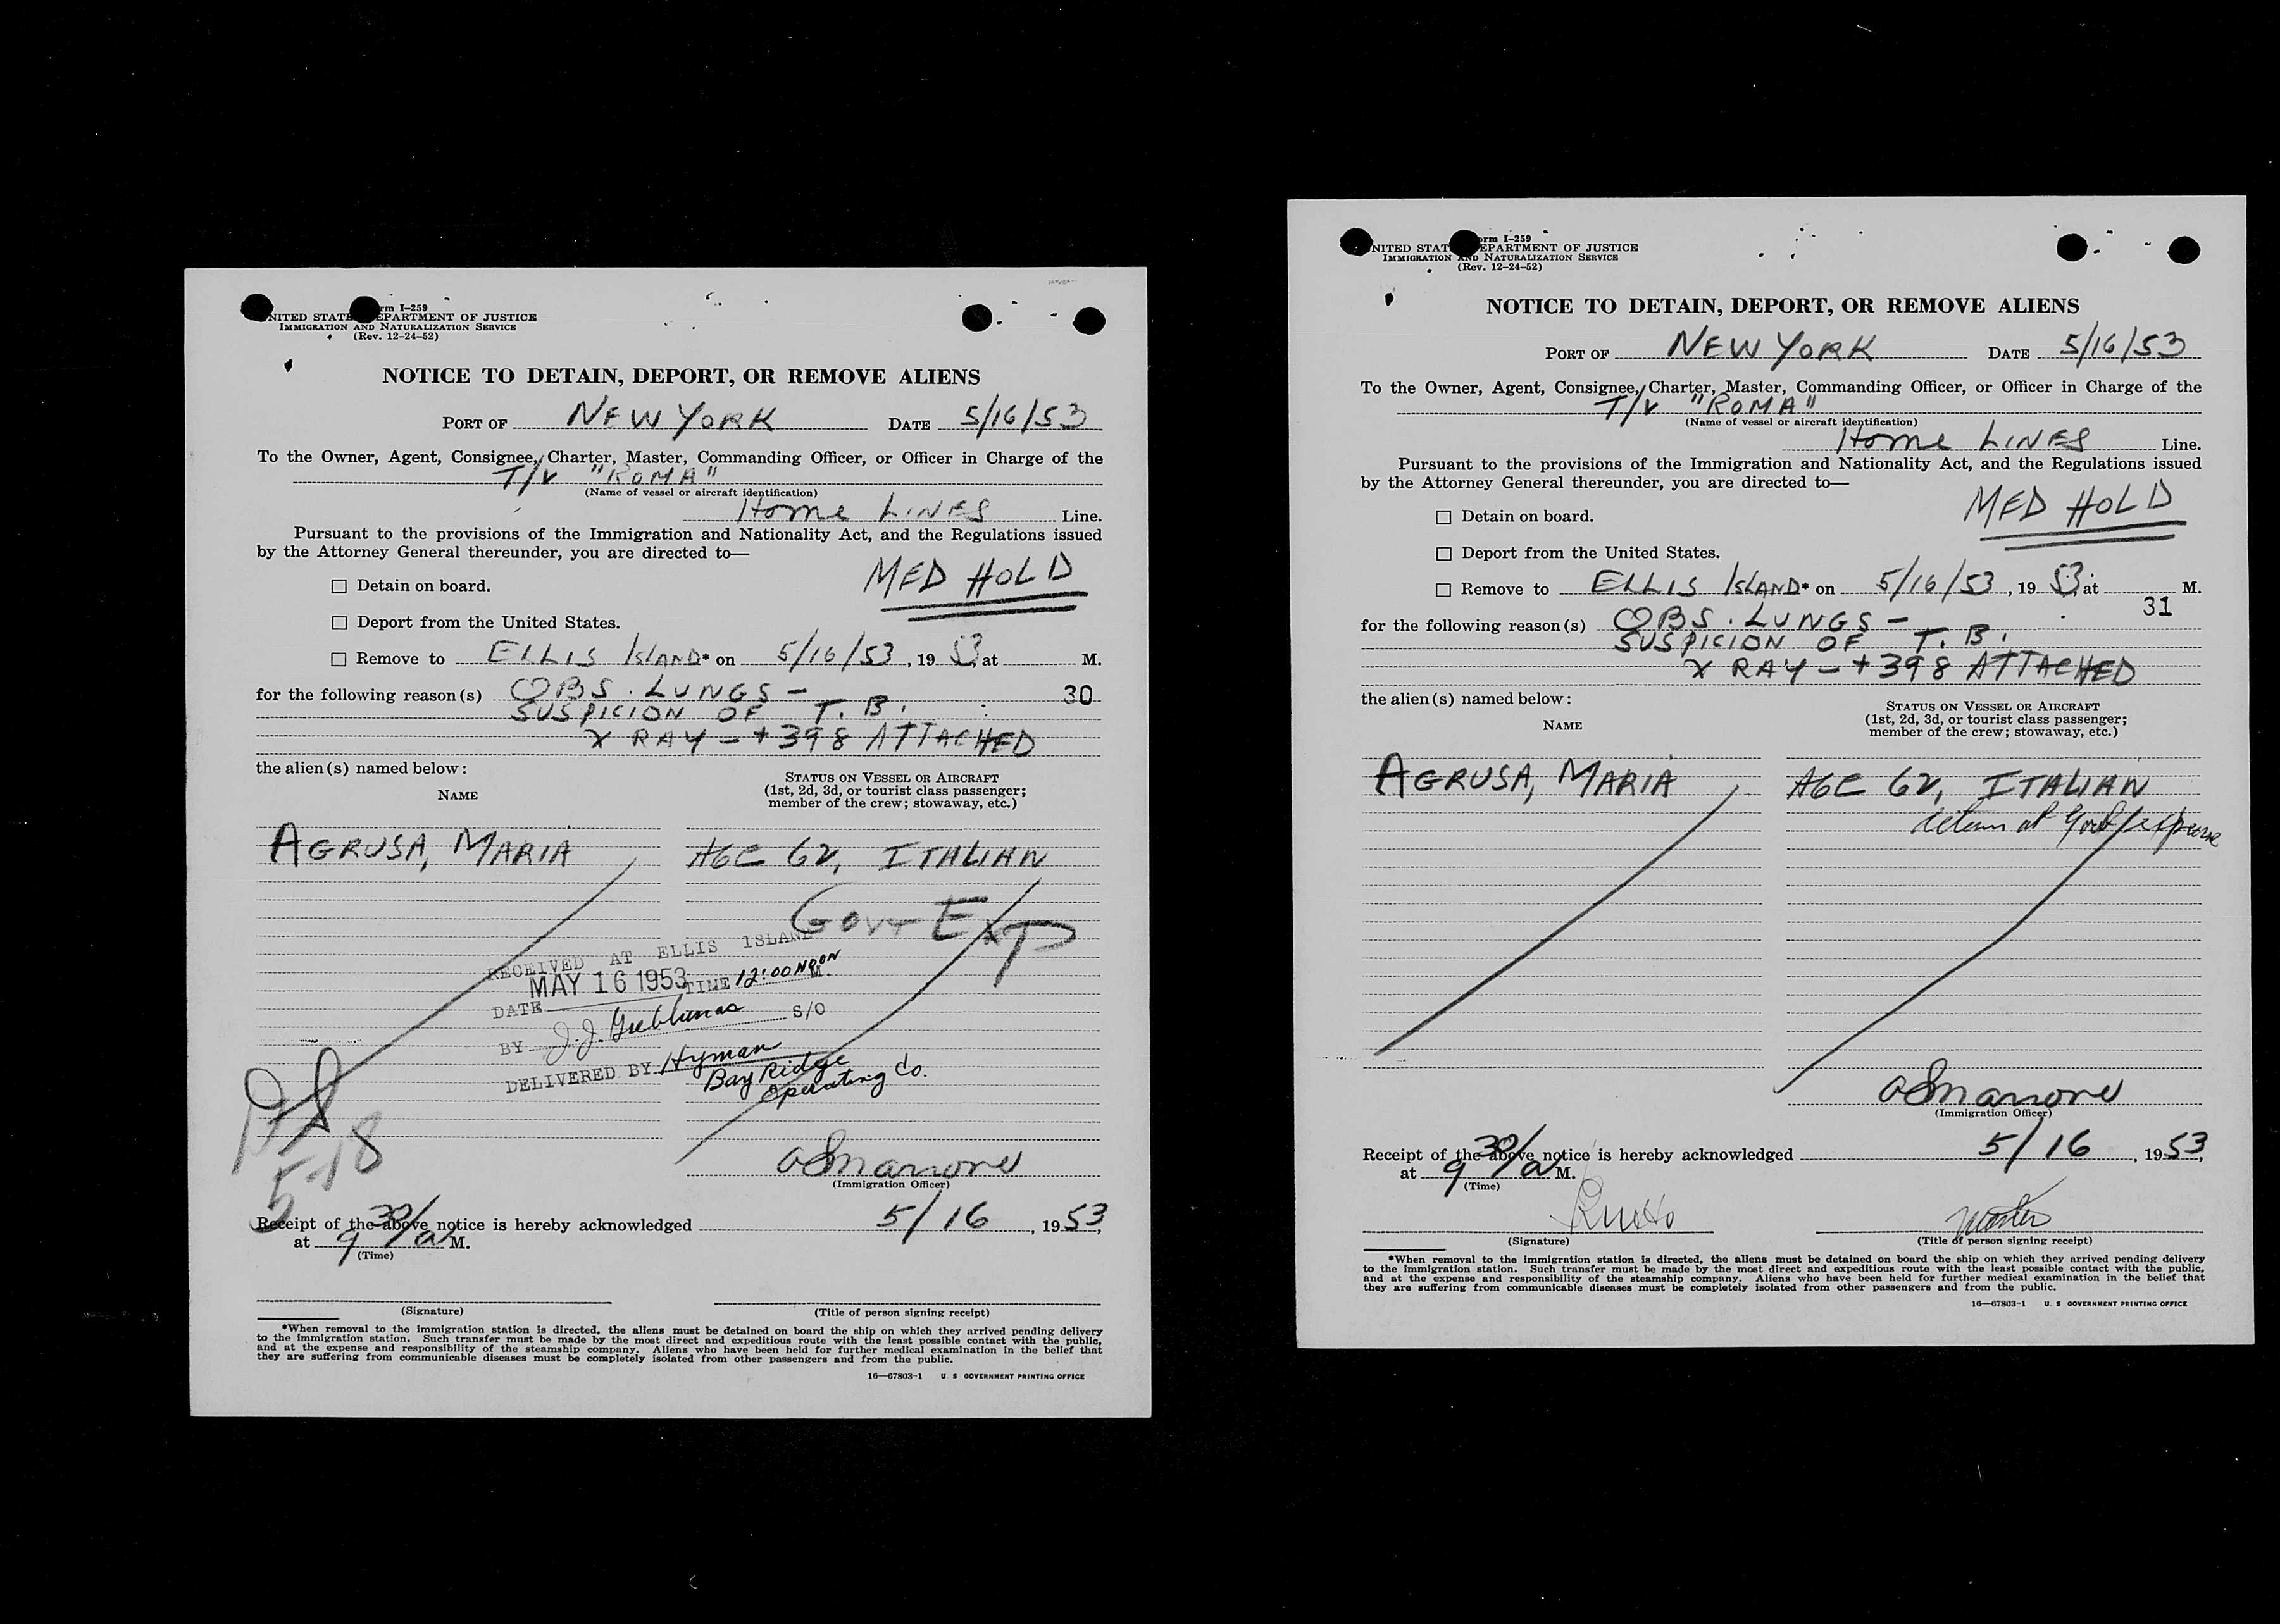 Form I-259
UNITED STATES DEPARTMENT OF JUSTICE
IMMIGRATION AND NATURALIZATION SERVICE
(Rev. 12-24-52)
NOTICE TO DETAIN, DEPORT, OR REMOVE ALIENS
PORT OF NEW YORK DATE 5/16/53
To the Owner, Agent, Consignee, Charter, Master, Commanding Officer, or Officer in Charge of the
T/V "ROMA"
(Name of vessel or aircraft identification)
Home LINES Line.
Pursuant to the provisions of the Immigration and Nationality Act, and the Regulations issued
by the Attorney General thereunder, you are directed to—
MED HOLD
☐ Detain on board.
☐ Deport from the United States.
☐ Remove to ELLIS ISLAND* on 5/16/53, 19 53, at M.
for the following reason(s) OBS. LUNGS - 30
SUSPICION OF T.B.
X RAY - + 398 ATTACHED
the alien(s) named below:
NAME
STATUS ON VESSEL OR AIRCRAFT
(1st, 2d, 3d, or tourist class passenger;
member of the crew; stowaway, etc.)
AGRUSA, MARIA AGE 62, ITALIAN
GOVT EXP
RECEIVED AT ELLIS ISLAND
DATE MAY 16 1953 TIME 12:00 NOON M.
BY J.J. S/O
DELIVERED BY Hyman
Bay Ridge
Operating Co.
5-18
(Immigration Officer)
Receipt of the above notice is hereby acknowledged 5/16, 1953,
at 9 30/a M.
(Time)
(Signature) (Title of person signing receipt)
*When removal to the immigration station is directed, the aliens must be detained on board the ship on which they arrived pending delivery
to the immigration station. Such transfer must be made by the most direct and expeditious route with the least possible contact with the public,
and at the expense and responsibility of the steamship company. Aliens who have been held for further medical examination in the belief that
they are suffering from communicable diseases must be completely isolated from other passengers and from the public.
16—67803-1 U. S GOVERNMENT PRINTING OFFICE
Form I-259
UNITED STATES DEPARTMENT OF JUSTICE
IMMIGRATION AND NATURALIZATION SERVICE
(Rev. 12-24-52)
NOTICE TO DETAIN, DEPORT, OR REMOVE ALIENS
PORT OF NEW YORK DATE 5/16/53
To the Owner, Agent, Consignee, Charter, Master, Commanding Officer, or Officer in Charge of the
T/V "ROMA"
(Name of vessel or aircraft identification)
Home LINES Line.
Pursuant to the provisions of the Immigration and Nationality Act, and the Regulations issued
by the Attorney General thereunder, you are directed to—
MED HOLD
☐ Detain on board.
☐ Deport from the United States.
☐ Remove to ELLIS ISLAND* on 5/16/53, 19 53, at M.
31
for the following reason(s) OBS. LUNGS -
SUSPICION OF T.B.
X RAY - + 398 ATTACHED
the alien(s) named below:
NAME
STATUS ON VESSEL OR AIRCRAFT
(1st, 2d, 3d, or tourist class passenger;
member of the crew; stowaway, etc.)
AGRUSA, MARIA AGE 62, ITALIAN
detain at Govt expense
(Immigration Officer)
Receipt of the above notice is hereby acknowledged 5/16, 1953,
at 9 30/a M.
(Time)
Master
(Signature) (Title of person signing receipt)
*When removal to the immigration station is directed, the aliens must be detained on board the ship on which they arrived pending delivery
to the immigration station. Such transfer must be made by the most direct and expeditious route with the least possible contact with the public,
and at the expense and responsibility of the steamship company. Aliens who have been held for further medical examination in the belief that
they are suffering from communicable diseases must be completely isolated from other passengers and from the public.
16—67803-1 U. S GOVERNMENT PRINTING OFFICE